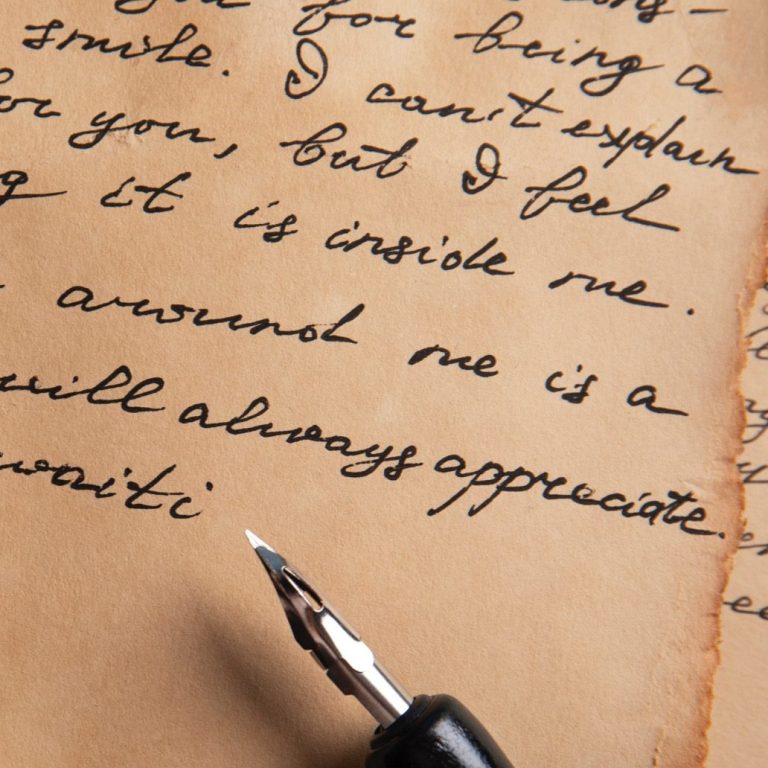 you for being a
smile. I can't explain
for you, but I feel
it is inside me.
around me is a
will always appreciate.
waiti